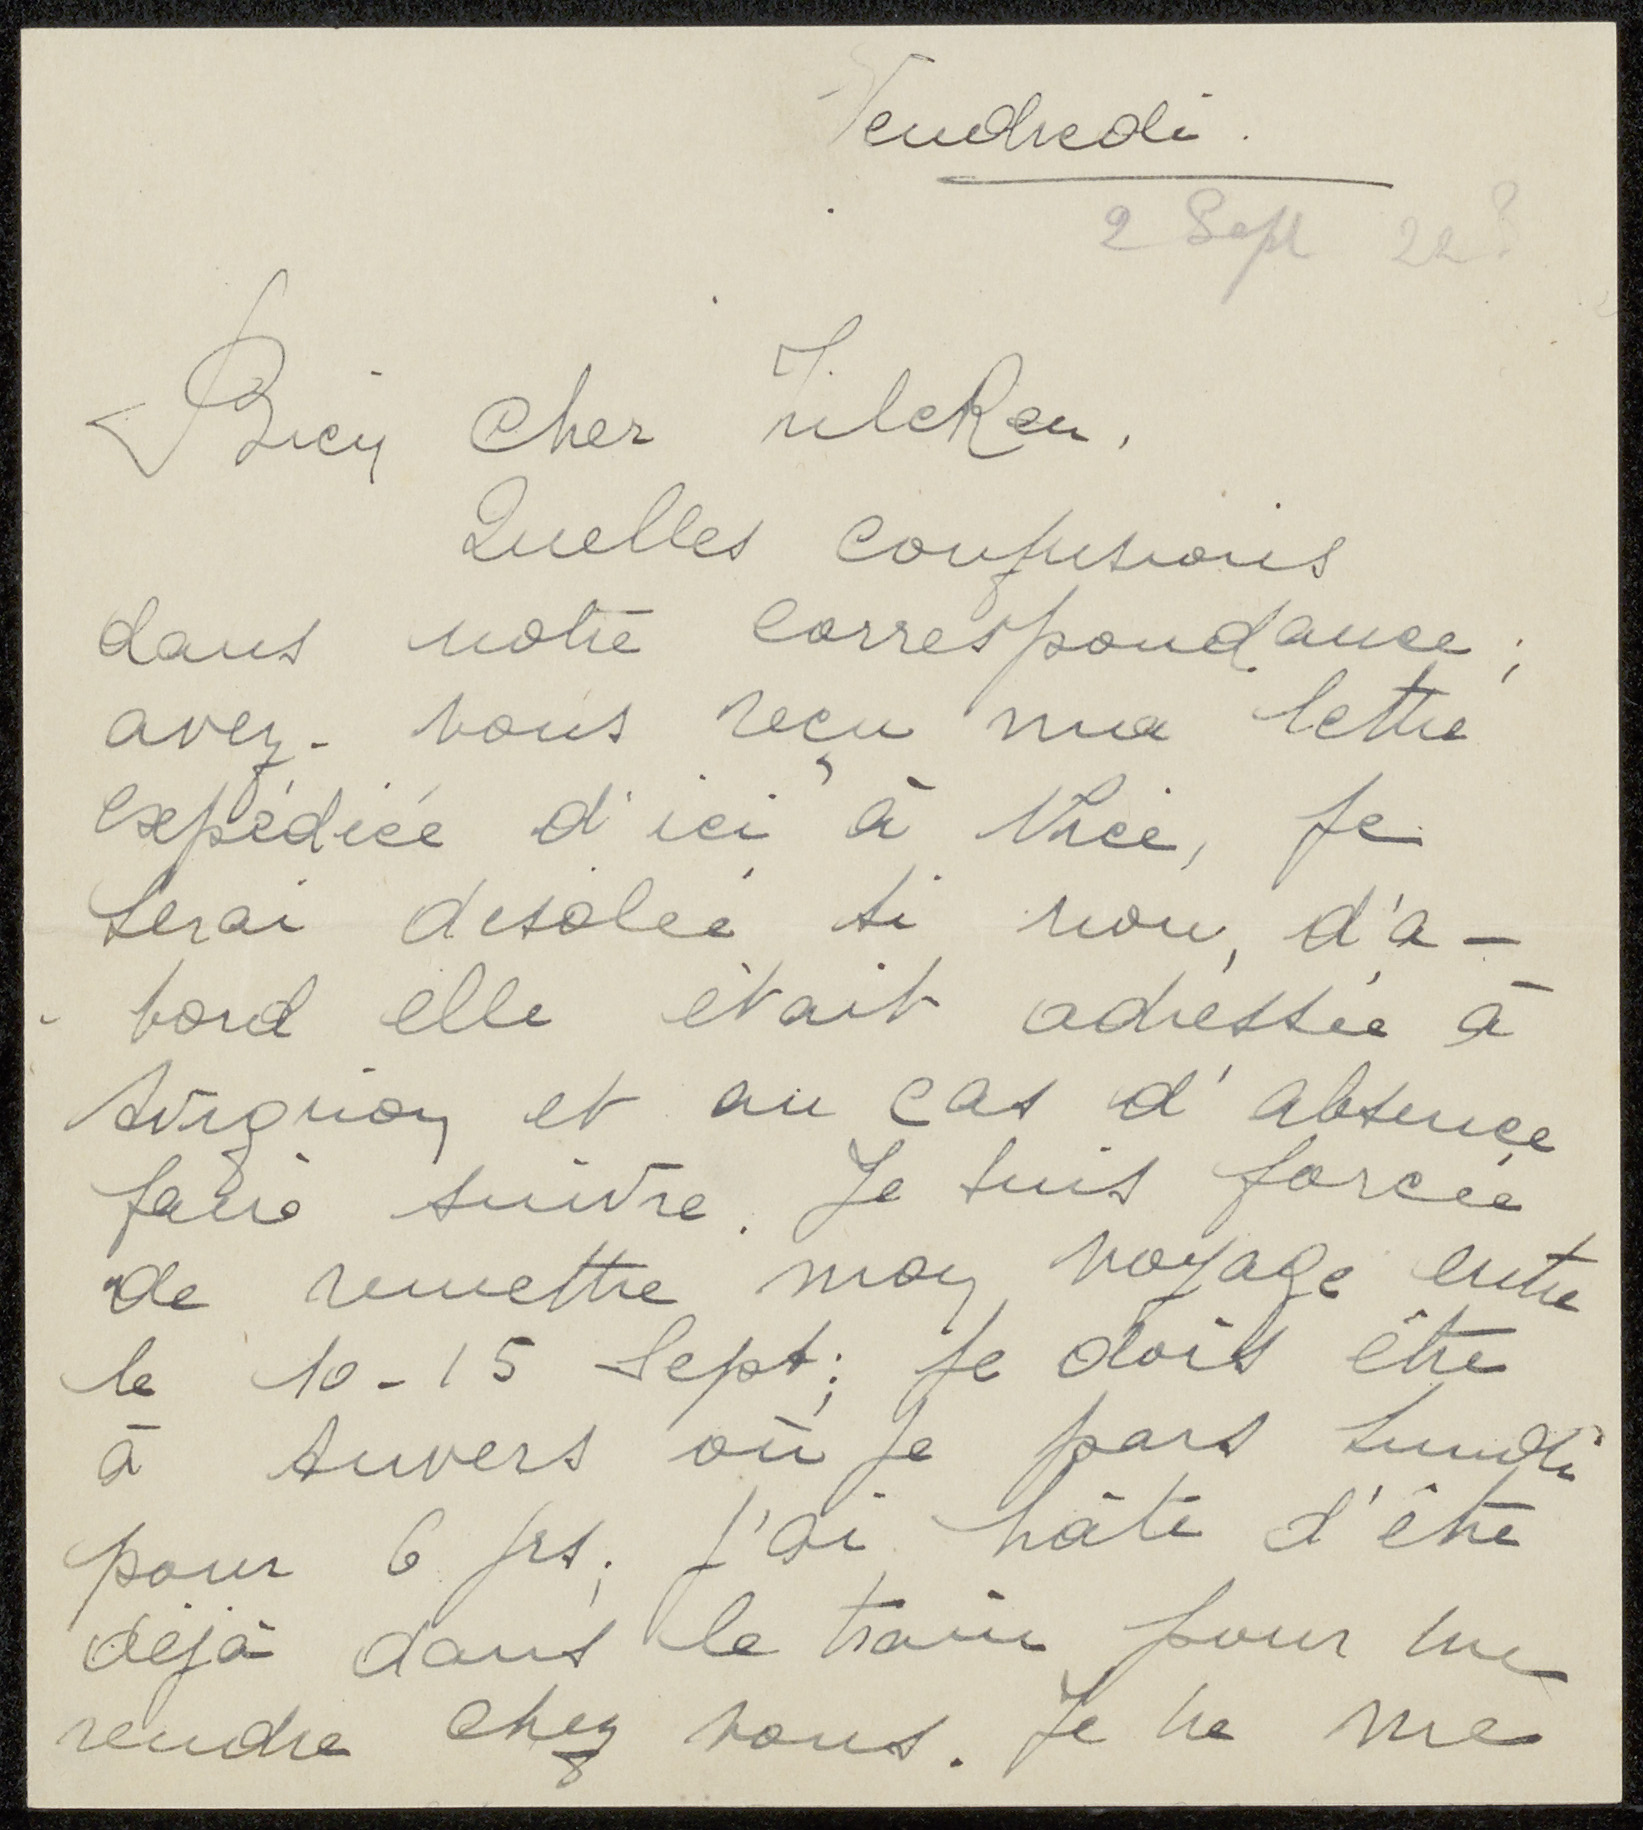 Vendredi.
2 Sept 22?
Bien cher Zilcken,
Quelles confusions
dans notre correspondance;
avez-vous reçu ma lettre
expédiée d'ici à Nice, je
serai desolée si non, d'a-
bord elle était adressée à
Avignon et au cas d'absence
faire suivre. Je suis forcée
de remettre mon voyage entre
le 10-15 Sept; je dois être
à Anvers où je pars Lundi
pour 6 jrs; j'ai hâte d'être
déjà dans le train pour me
rendre chez vous. Je ne me